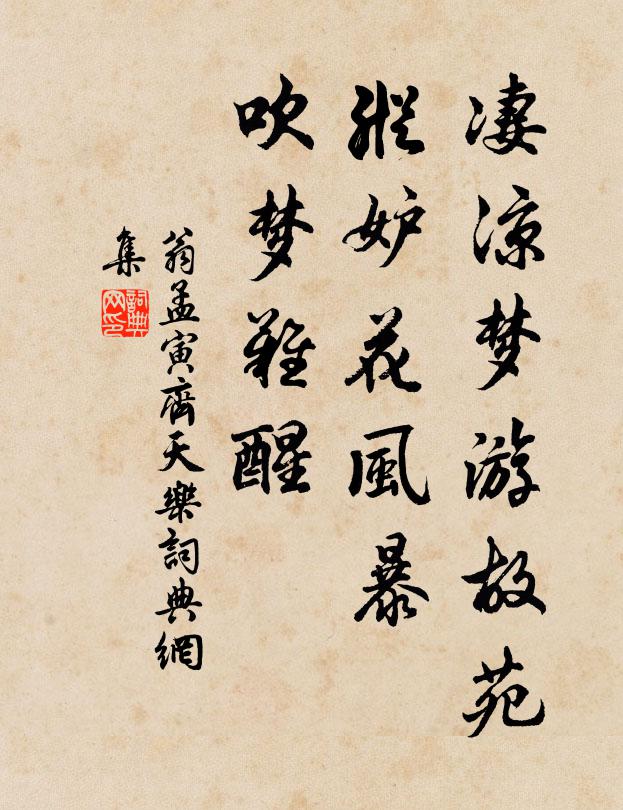 凄凉梦游故苑
纵妒花風暴
吹梦難醒
翁孟寅齊天樂詞典網
集
詞典
网印